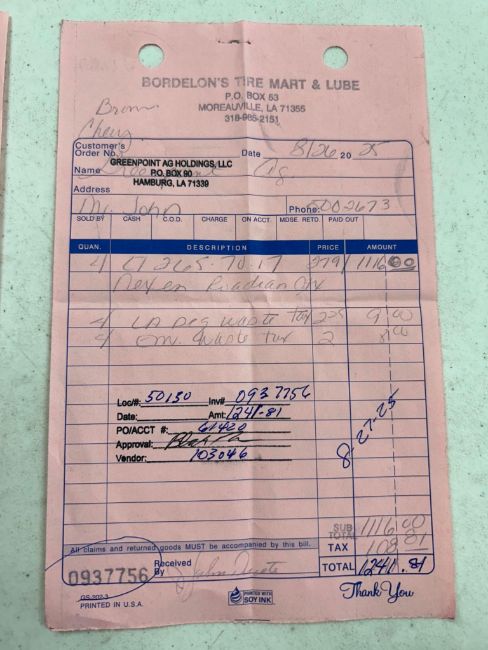 BORDELON'S TIRE MART & LUBE
P.O. BOX 53
MOREAUVILLE, LA 71355
318-985-2151
Brown
Chevy
Customer's
Order No.
Date 8/26 20 25
Name GREENPOINT AG HOLDINGS, LLC
P.O. BOX 90
HAMBURG, LA 71339
Ag
Address
Mr John
Phone: 5002673
SOLD BY CASH C.O.D. CHARGE ON ACCT. MDSE. RETD. PAID OUT
QUAN. DESCRIPTION PRICE AMOUNT
4 LT 265-70-17 279 1116 00
Nexen Roadian
4 LA waste tax 2.25 9 00
4 waste tax 2 8 00
Loc#: 50130 Inv# 0937756
Date: Amt: 1241.81
PO/ACCT #: 61420
Approval:
Vendor: 103046
8-27-25
SUB TOTAL 1116 00
All claims and returned goods MUST be accompanied by this bill.
TAX 108 81
0937756
Received By John
TOTAL 1241.81
GS-202-3
PRINTED IN U.S.A.
PRINTED WITH
SOY INK
Thank You